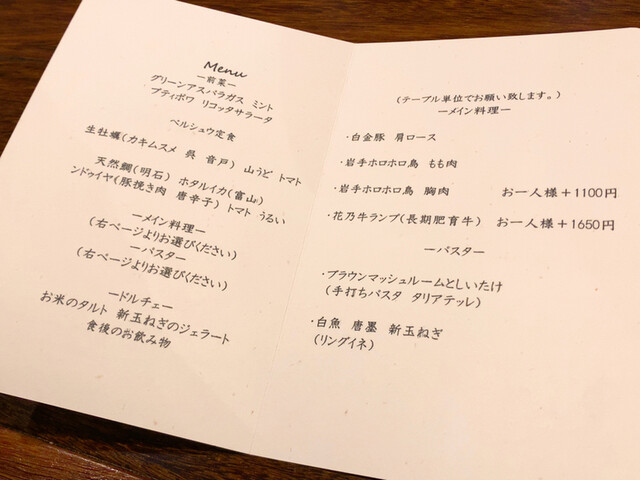 Menu
ー前菜ー
グリーンアスパラガス ミント
プティポワ リコッタサラータ
ペルシュウ定食
生牡蠣(カキムスメ 呉 音戸) 山うど トマト
天然鯛(明石) ホタルイカ(富山)
ンドゥイヤ(豚挽き肉 唐辛子) トマト うるい
ーメイン料理ー
(右ページよりお選びください)
ーパスター
(右ページよりお選びください)
ードルチェー
お米のタルト 新玉ねぎのジェラート
食後のお飲み物
(テーブル単位でお願い致します。)
ーメイン料理ー
・白金豚 肩ロース
・岩手ホロホロ鳥 もも肉
・岩手ホロホロ鳥 胸肉 お一人様+1100円
・花乃牛ランプ(長期肥育牛) お一人様+1650円
ーパスター
・ブラウンマッシュルームとしいたけ
(手打ちパスタ タリアテッレ)
・白魚 唐墨 新玉ねぎ
(リングイネ)